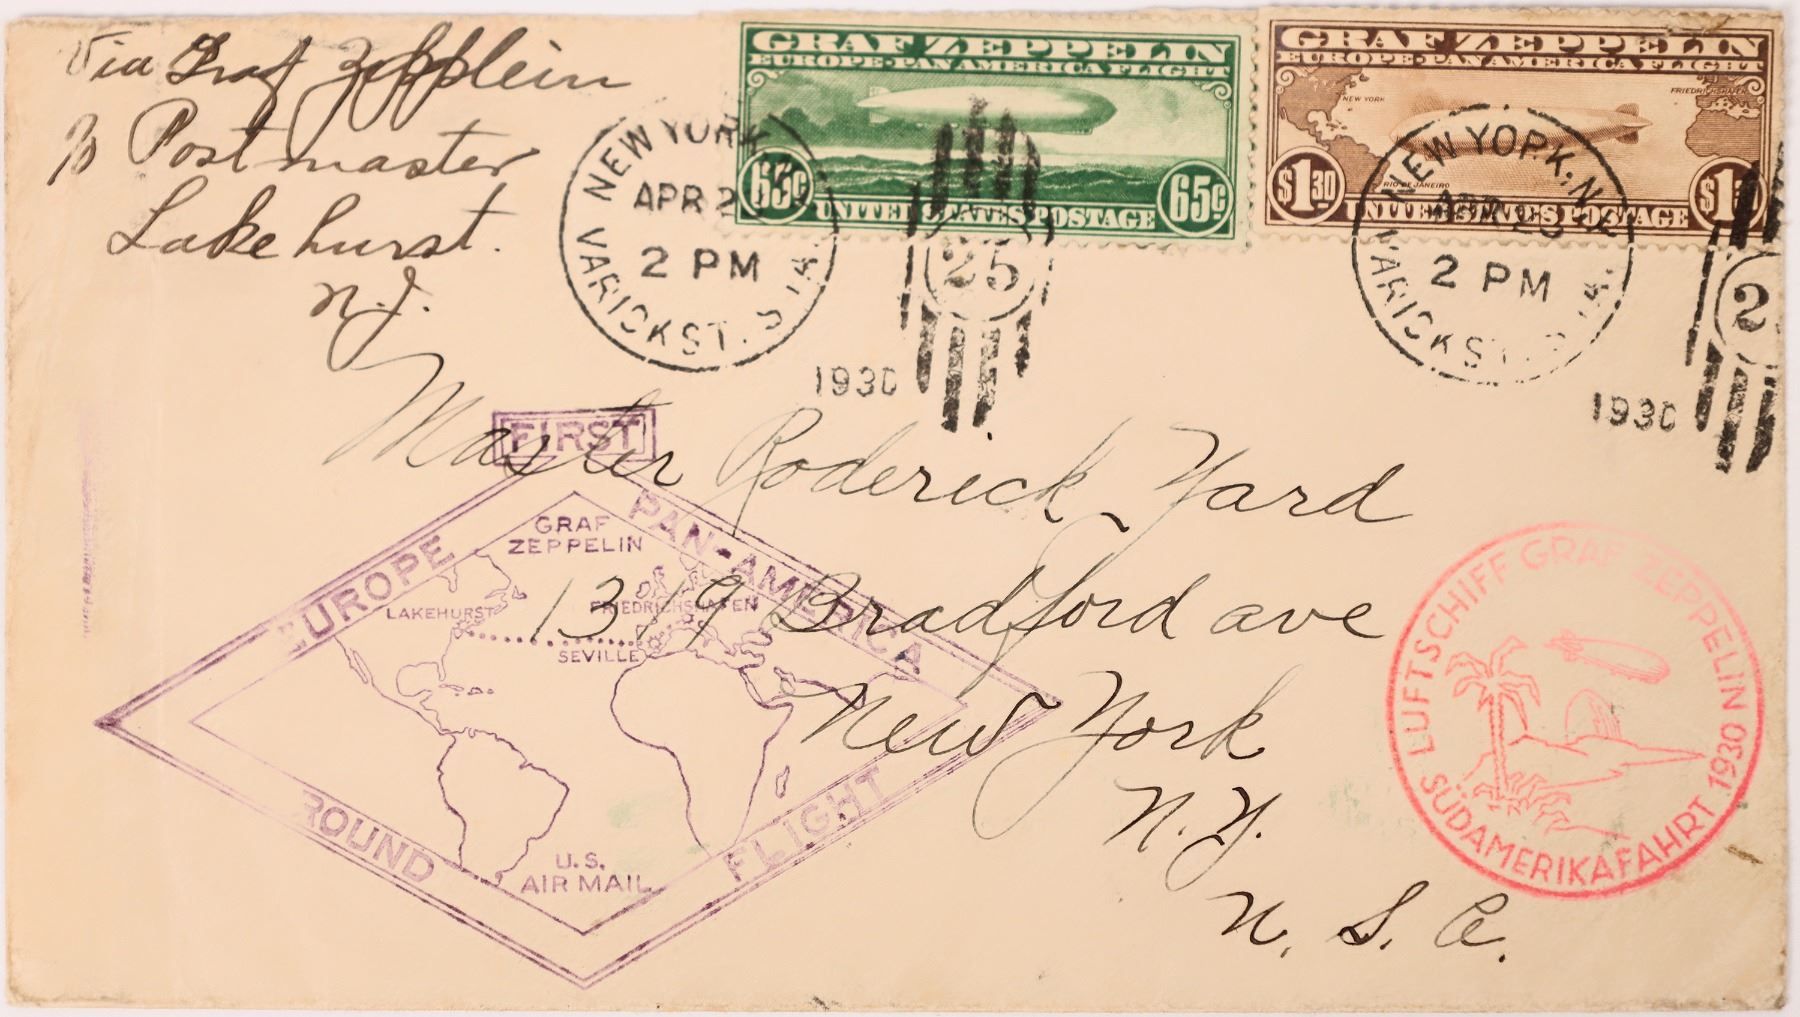 Via Graf Zeppelein
% Postmaster
Lakehurst.
N.J.
GRAF ZEPPELIN
EUROPE-PAN AMERICA FLIGHT
65c 65c
UNITED STATES POSTAGE
GRAF ZEPPELIN
EUROPE-PAN AMERICA FLIGHT
NEW YORK
FRIEDRICHSHAFEN
RIO DE JANEIRO
$1.30
UNITED STATES POSTAGE
NEW YORK, N.Y.
APR
2 PM
VARICK ST. STA.
25
1930
NEW YORK, N.Y.
APR
2 PM
VARICK ST. STA.
2
1930
Master Roderick Yard
1319 Bradford ave
New York
N.Y.
U. S. A.
FIRST
EUROPE
PAN-AMERICA
GRAF
ZEPPELIN
LAKEHURST
FRIEDRICHSHAFEN
SEVILLE
U.S.
AIR MAIL
ROUND
FLIGHT
LUFTSCHIFF GRAF ZEPPELIN
SÜDAMERIKAFAHRT 1930